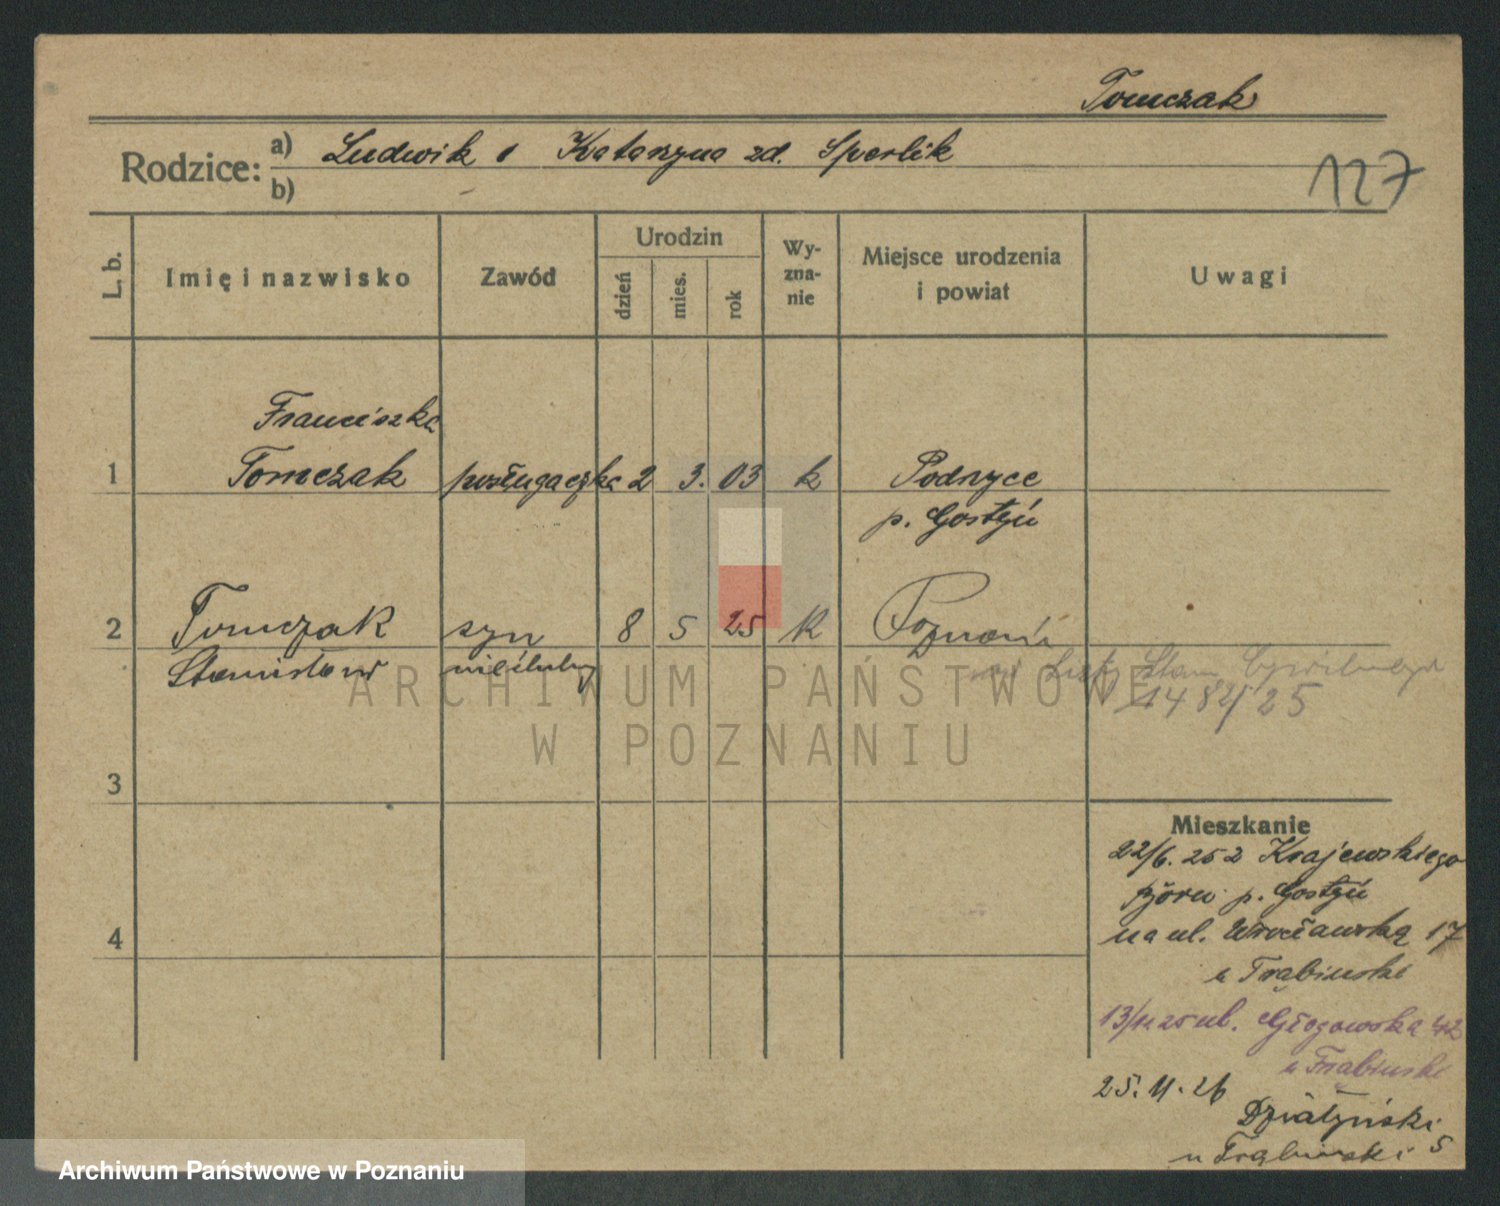 Tomczak
Rodzice: a) Ludwik i Katarzyna zd. Sperlik
b)
127
L. b.
Imię i nazwisko
Zawód
Urodzin
dzień
mies.
rok
Wy-
zna-
nie
Miejsce urodzenia
i powiat
Uwagi
Franciszka
1 Tomczak posługaczka 2 3. 03 k Podrzyce
p. Gostyń
2 Tomczak syn 8 5 25 k Poznań
Stanisław nieślubny
1482/25
ARCHIWUM PAŃSTWOWE
W POZNANIU
3
Mieszkanie
22/6. 25 z Krajewskiego
p. Gostyń
4
na ul. Wrocławską 17
u Trąbinski
13/11 25 ul. Głogowska 42
u Trąbinski
25. 11. 26
Działyński
u Trąbinski 5
Archiwum Państwowe w Poznaniu